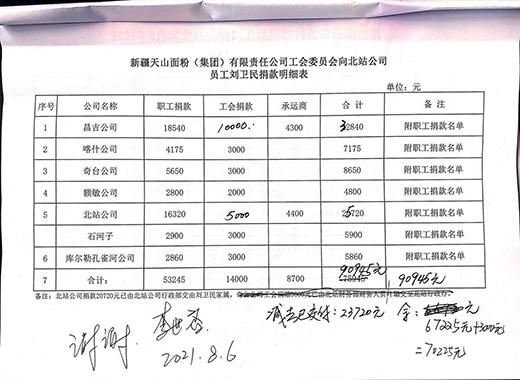 新疆天山面粉（集团）有限责任公司工会委员会向北站公司
员工刘卫民捐款明细表
单位：元
序号 公司名称 职工捐款 工会捐款 承运商 合计 备注
1 昌吉公司 18540 10000 4300 32840 附职工捐款名单
2 喀什公司 4175 3000 7175 附职工捐款名单
3 奇台公司 5650 3000 8650 附职工捐款名单
4 额敏公司 2800 2000 4800 附职工捐款名单
5 北站公司 16320 5000 4400 25720 附职工捐款名单
石河子 2900 3000 5900 附职工捐款名单
6 库尔勒孔雀河公司 2860 3000 5860 附职工捐款名单
90945元
7 合计： 53245 14000 8700 75945 90945元
备注：北站公司捐款20720元已由北站公司行政部交由刘卫民家属，
减去已支付：23720元
67225元+3000元
=70225元
谢谢.
2021.8.6